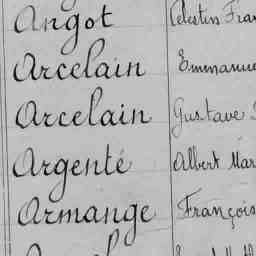 Angot Célestin Fran
Arcelain Emmanue
Arcelain Gustave
Argenté Albert Mar
Armange François